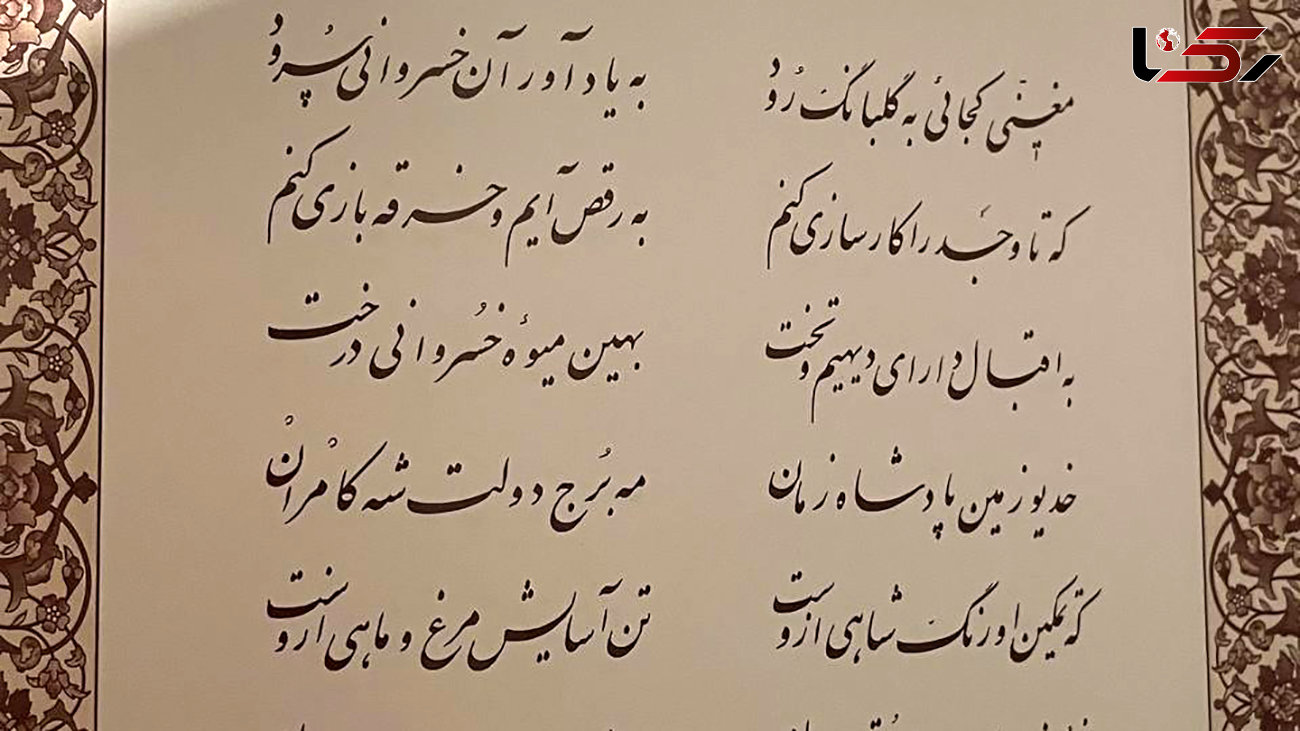 رکنا
مغنّی کجائی به گلبانگ رُود به یاد آور آن خسروانی سُرود
که تا وَجد را کارسازی کنم به رقص آیم و خرقه بازی کنم
به اقبال دارای دیهیم و تخت بهین میوهٔ خُسروانی درخت
خدیو زمین پادشاه زمان مه بُرج دولت شه کامْرانْ
که تمکین اورنگ شاهی ازوست تن آسایش مرغ و ماهی ازوست